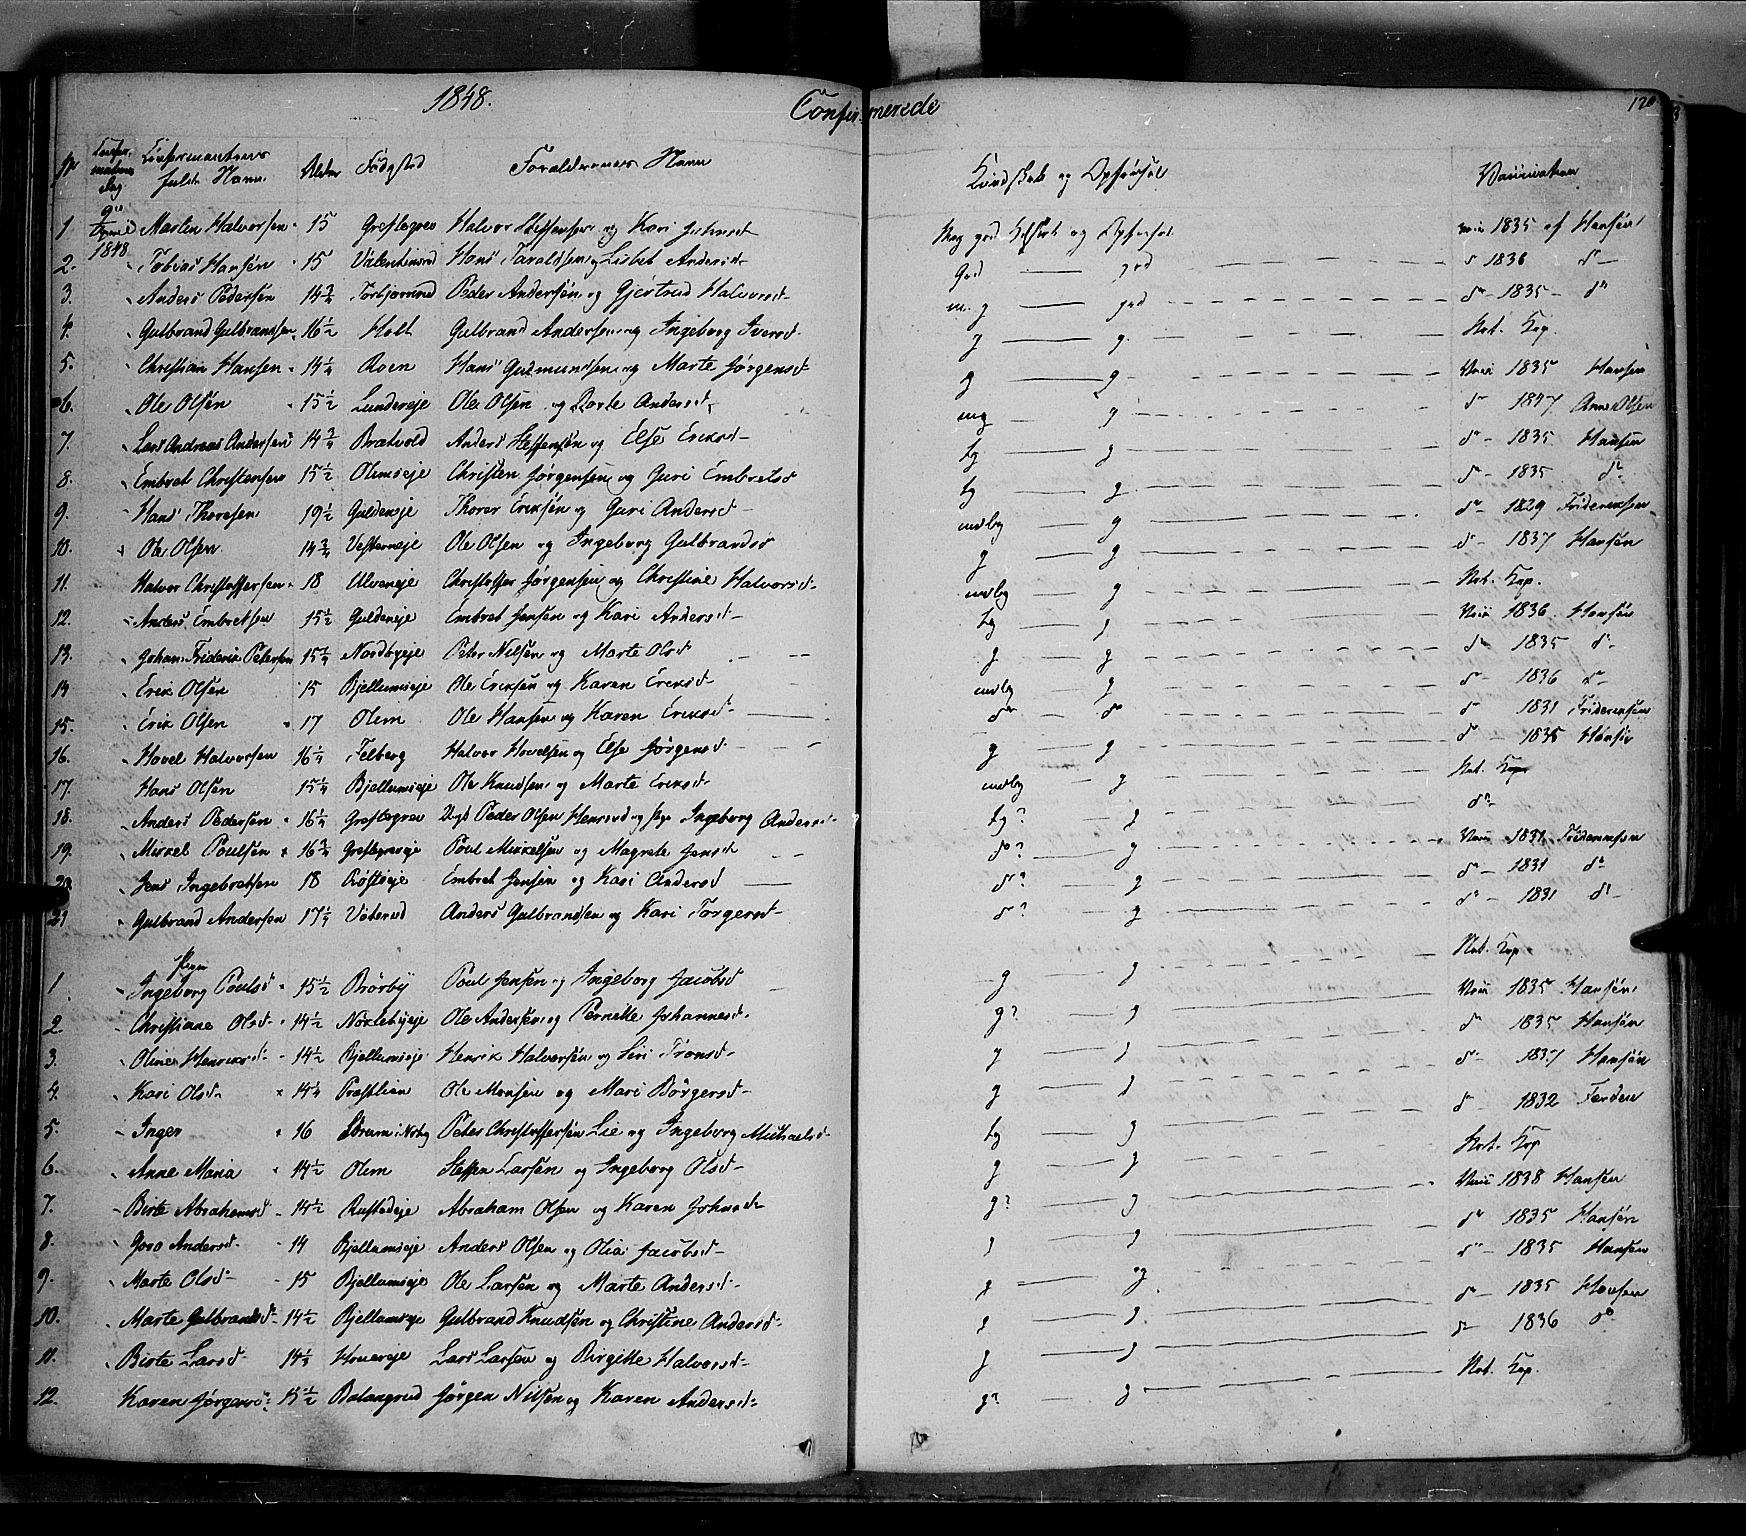 1848. Confirmerede 120
Nr Confirmations Dag Confirmantens fulde Navn Alder Födested Forældrenes Navn Kundskab og Opförsel Vaccination
9de April 1848
1 Martin Halvorsen 15 Greftegrev Halvor Steffensen og Kari Johnsd Meg god Kundsk og Opförsel vac 1835 af Hansen
2. Tobias Hansen 15 Valentinrud Hans Taraldsen og Lisbet Andersd God god d 1836 do
3. Anders Pedersen 14 3/4 Torbjörnrud Peder Andersen og Gjertrud Halvorsd m. g god do 1835 do
4. Gulbrand Gulbrandsen 16 1/2 Holt Gulbrand Andersen og Ingeborg Iversd g g. Nat. Kop.
5. Christian Hansen 14 1/4 Roen Hans Gudmundsen og Marte Jörgensd g g Vac 1835 Hansen
6. Ole Olsen 15 1/2 Lundereje Ole Olsen og Dorte Andersd mg g do 1837 Anne Olsen
7. Lars Andreas Andersen 14 3/4 Bratvold Anders Steffensen og Else Eriksd tg g do 1835 Hansen
8. Embret Christensen 15 1/2 Olimseje Christen Jörgensen og Guri Embretsd tg g do 1835 do
9. Hans Thoresen 19 1/2 Guldeneje Thorer Eriksen og Guri Andersd mdlg g do 1829 Fridericksen
10. Ole Olsen 14 3/4 Vesterneje Ole Olsen og Ingeborg Gulbrandsd g g do 1837 Hansen
11. Halvor Christoffersen 18 Ulveneje Christoffer Jörgensen og Christine Halvorsd mdlg g Nat. Kop.
12. Anders Embretsen 15 1/2 Guldeneje Embret Jensen og Kari Andersd tg g Vac 1836 Hansen
13. Johan Friderik Petersen 15 1/4 Nordbyeje Peter Nilsen og Marte Olsd g g d 1835 do
14 Erik Olsen 15 Bjellumseje Ole Eriksen og Karen Eriksd mdlg g do 1836 do
15. Erik Olsen 17 Olim Ole Hansen og Karen Eriksd do do do 1831 Fridericksen
16. Hovel Halvorsen 16 1/4 Felberg Halvor Hovelsen og Else Jörgensd g g do 1835 Hansen
17. Hans Olsen 15 1/4 Bjellumseje Ole Knudsen og Marte Eriksd mdlg g Nat. Kop
18. Anders Pedersen 16 1/4 Greftegrev Peder Olsen og Ingeborg Andersd tg? g do
19. Mikkel Poulsen 16 3/4 Greftegreveje Poul Mikkelsen og Magrete Jensd do? g Vac 1831 Fridericksen
20. Jens Ingebretsen 18 Röstöeje Embret Jensen og Kari Andersd do? g do 1831 do
21 Gulbrand Andersen 17 1/4 Vöterud Anders Gulbrandsen og Kari Torgersd do? g do 1831 do
Piger
1 Ingeborg Poulsd 15 1/2 Brörby Poul Jensen og Ingeborg Jacobsd g g Nat. Kop
2 Christiane Olsd 14 1/2 Noklebyeje Ole Andersen og Pernille Johannesd g? g Vac 1835 Hansen
3. Oline Henriksd 14 1/2 Bjellumseje Henrik Halvorsen og Siri Tronsd g g do 1835 Hansen
4. Kari Olsd 14 1/4 Præstlien Ole Monsen og Mari Börgersd g g do 1837 Hansen
5. Inger 16 Strøm i Norby Peter Christoffersen Lie og Ingeborg Michaelsd tg g do 1832 Færden
6. Anne Maria 14 1/2 Olim Steffen Larsen og Ingeborg Olsd g g Nat. Kop
7. Birte Abrahamsd 14 1/2 Rustadeje Abraham Olsen og Karen Johnsd g? g Vac 1838 Hansen
8. Goro Andersd 14 Bjellumseje Anders Olsen og Olia Jacobsd g g do 1835 Hansen
9. Marte Olsd 15 Bjellumseje Ole Larsen og Marte Andersd g g do 1835 Hansen
10. Marte Gulbrandsd 14 1/2 Bjellumseje Gulbrand Knudsen og Christine Andersd g g do 1835 Hansen
11. Birte Larsd 14 1/4 Hovereje Lars Larsen og Birgitte Halvorsd g g do 1836 do
12. Karen Jörgensd 15 1/2 Balangrud Jörgen Nilsen og Karen Andersd g? g Nat. Kop.